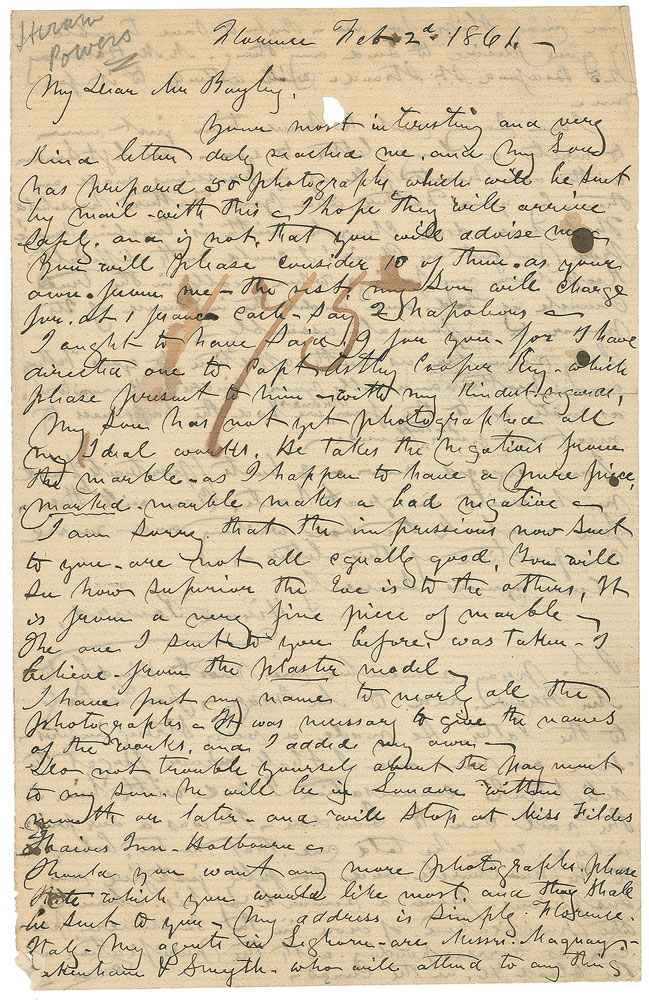 Hiram
Powers
Florence Feb 2d 1861.—
My Dear Mr Bayley,
Your most interesting and very
Kind letter duly reached me, and my Son
has prepared 50 photographs which will be sent
by mail - with this - I hope they will arrive
Safely. and if not, that you will advise me
You will please consider 10 of them as your
own. from me - the rest my Son will charge
for. at 1 franc each - Say 2 Napoleons -
I ought to have said 9 for you - for I have
directed one to Capt Astley Cooper Key - which
please present to him - with my Kindest regards,
My Son has not yet photographed all
my Ideal works. He takes the negatives from
the marble - as I happen to have a pure piece,
marked - marble makes a bad negative -
I am Sorry that the impressions now Sent
to you - are not all equally good, You will
see how superior the Eve is to the others, It
is from a very fine piece of marble -
The one I sent to you before, was taken - I
believe - from the plaster model -
I have put my name to nearly all the
photographs - It was necessary to give the names
of the works, and I added my own -
Do not trouble yourself about the payment
to my son. he will be in London within a
month or later - and will Stop at Miss Fildes
Thaives Inn - Holbourn -
Should you want any more photographs, please
Note which you would like most, and they shall
be sent to you - My address is simply. Florence.
Italy - My agents in Leghorn - are Messrs. Maquay -
Pakenham & Smyth - who will attend to any thing
475